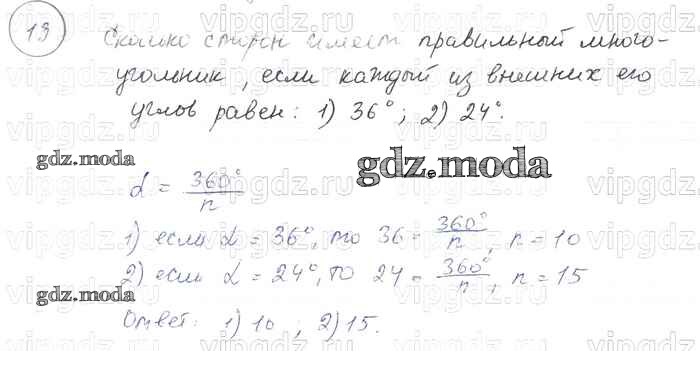 19
Сколько сторон имеет правильный много-
угольник, если каждый из внешних его
углов равен: 1) 36°; 2) 24°.
gdz.moda
gdz.moda
α = 360°/n
1) если α = 36°, то 36 = 360°/n, n = 10
2) если α = 24°, то 24 = 360°/n, n = 15
gdz.moda
Ответ: 1) 10 ; 2) 15.